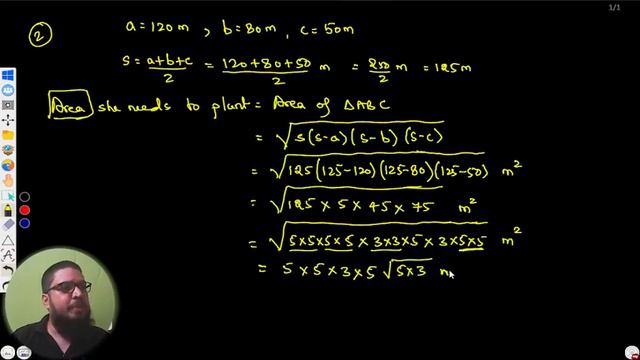 1/1
② a = 120m , b = 80m , c = 50m
s = a+b+c/2 = 120+80+50/2 m = 250/2 m = 125m
Area she needs to plant = Area of △ABC
= √s(s-a)(s-b)(s-c)
= √125(125-120)(125-80)(125-50) m²
= √125 × 5 × 45 × 75 m²
= √5×5×5×5×3×3×5×3×5×5 m²
= 5×5×3×5√5×3 m